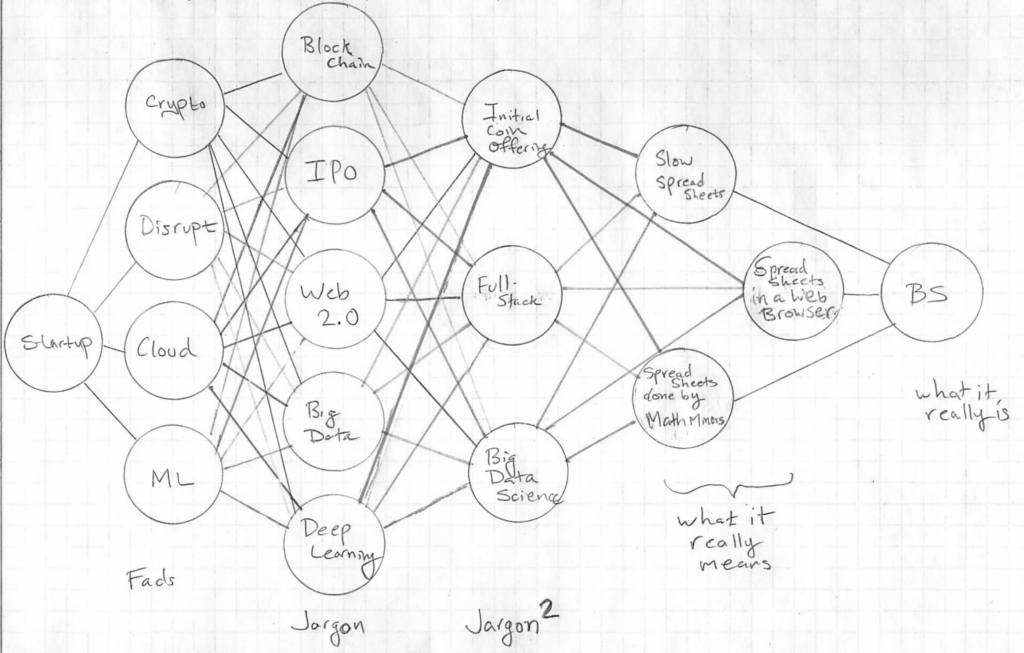 Startup
Crypto
Disrupt
Cloud
ML
Fads
Block
Chain
IPO
Web
2.0
Big
Data
Deep
Learning
Jargon
Initial
Coin
Offering
Full-
Stack
Big
Data
Science
Jargon²
Slow
Spread
Sheets
Spread
Sheets
in a Web
Browser
Spread
Sheets
done by
Math Minors
what it
really
means
BS
what it
really is